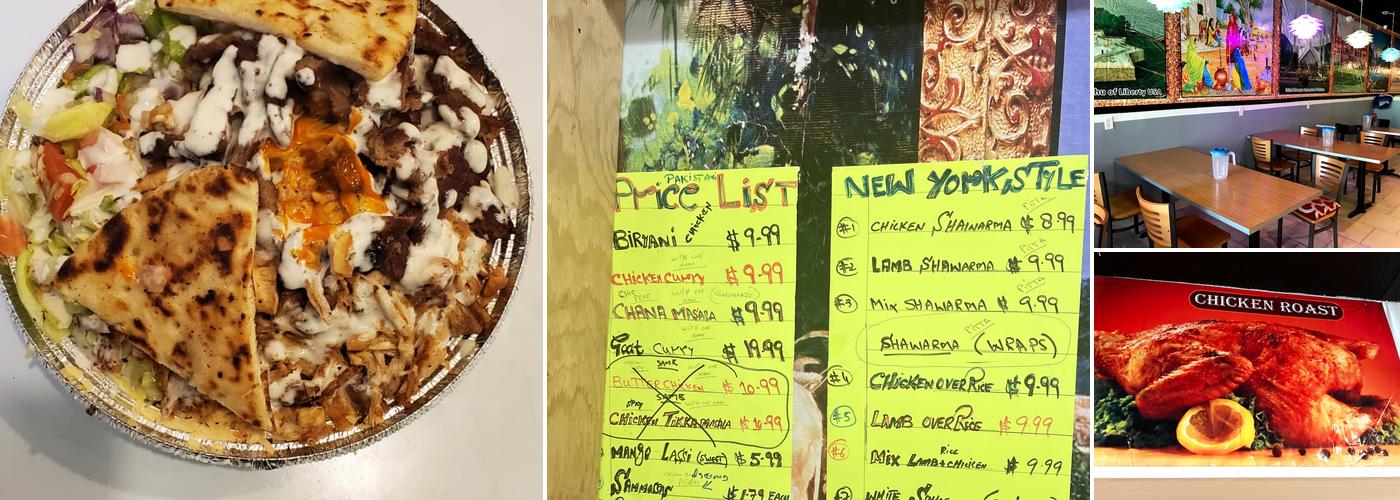 PAKISTAN
Price List
BIRYANI CHICKEN $ 9.99
WITH ONE NAAN
CHICKEN CURRY $ 9.99
CHANA MASALA $ 9.99
WITH ONE NAAN
Goat Curry $ 19.99
SAME
BUTTER CHICKEN $ 10.99
SAME
CHICKEN TIKKA MASALA $ 10.99
MANGO LASSI (SWEET) $ 5.99
$ 1.79 EACH
NEW YORK STYLE
PITTA
#1 CHICKEN SHAWARMA $ 8.99
PITTA
#2 LAMB SHAWARMA $ 9.99
PITTA
#3 Mix SHAWARMA $ 9.99
PITTA
SHAWARMA (WRAPS)
#4 CHICKEN OVER RICE $ 9.99
#5 LAMB OVER RICE $ 9.99
Rice
#6 Mix LAMB+CHICKEN $ 9.99
WHITE
hu of Liberty USA
CHICKEN ROAST